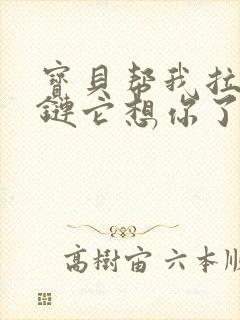 寳貝帮我拉
鏈它想你了
高樹宙 六本順